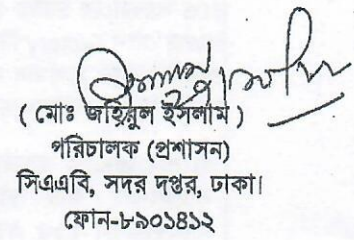 ( মোঃ জহিরুল ইসলাম )
পরিচালক (প্রশাসন)
সিএএবি, সদর দপ্তর, ঢাকা।
ফোন-৮৯০১৪১২